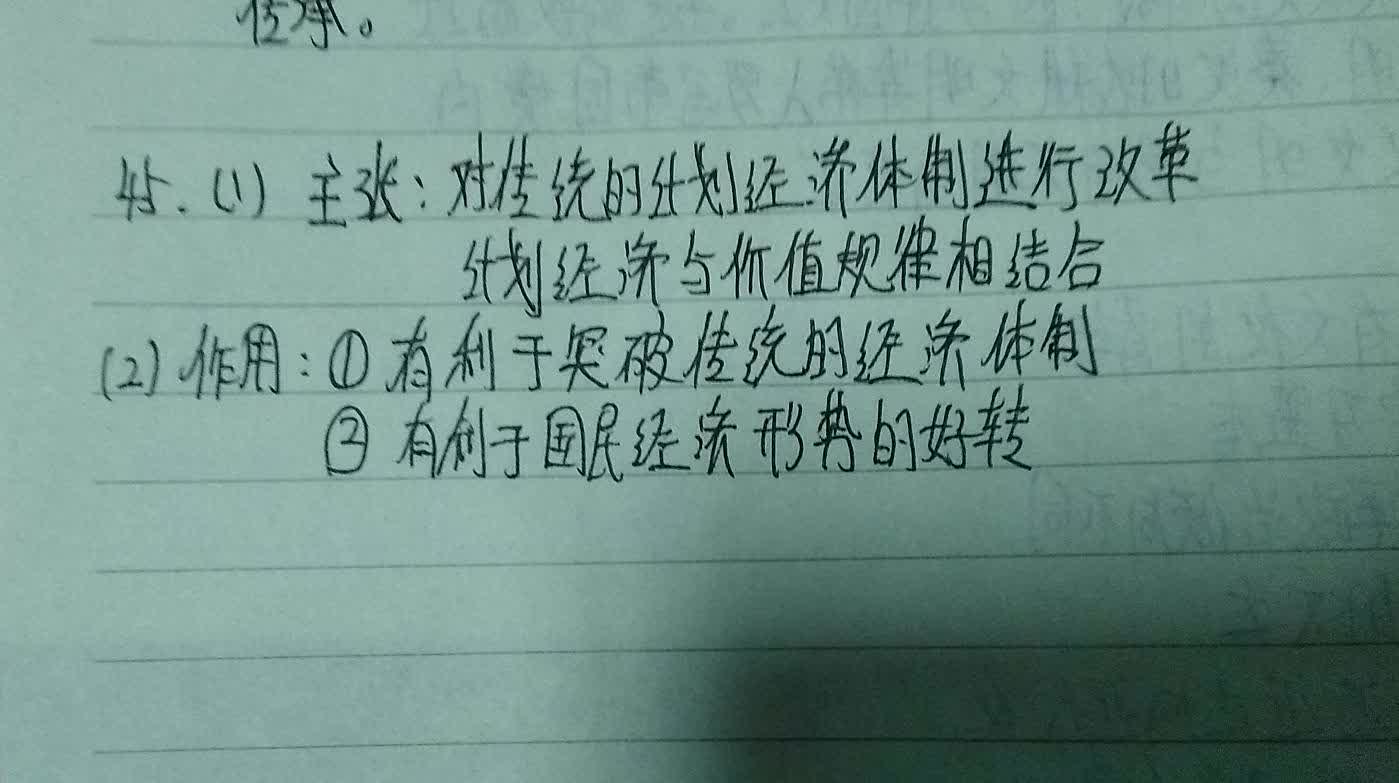 传承。
45.(1) 主张:对传统的计划经济体制进行改革
计划经济与价值规律相结合
(2)作用:①有利于突破传统的经济体制
②有利于国民经济形势的好转